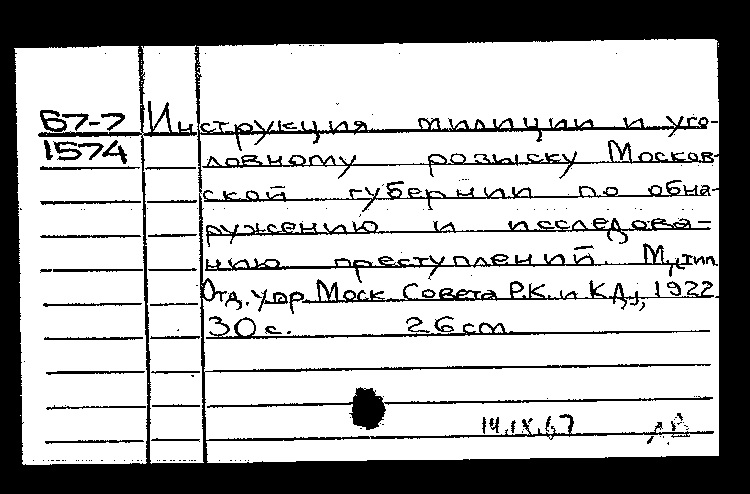 67-7 Инструкция милиции и уго-
1574 ловному розыску Москов-
ской губернии по обна-
ружению и исследова-
нию преступлений. М., тип.
Отд. упр. Моск. Совета Р.К. и К.Д., 1922
30 с. 26 см.
14.IX.67